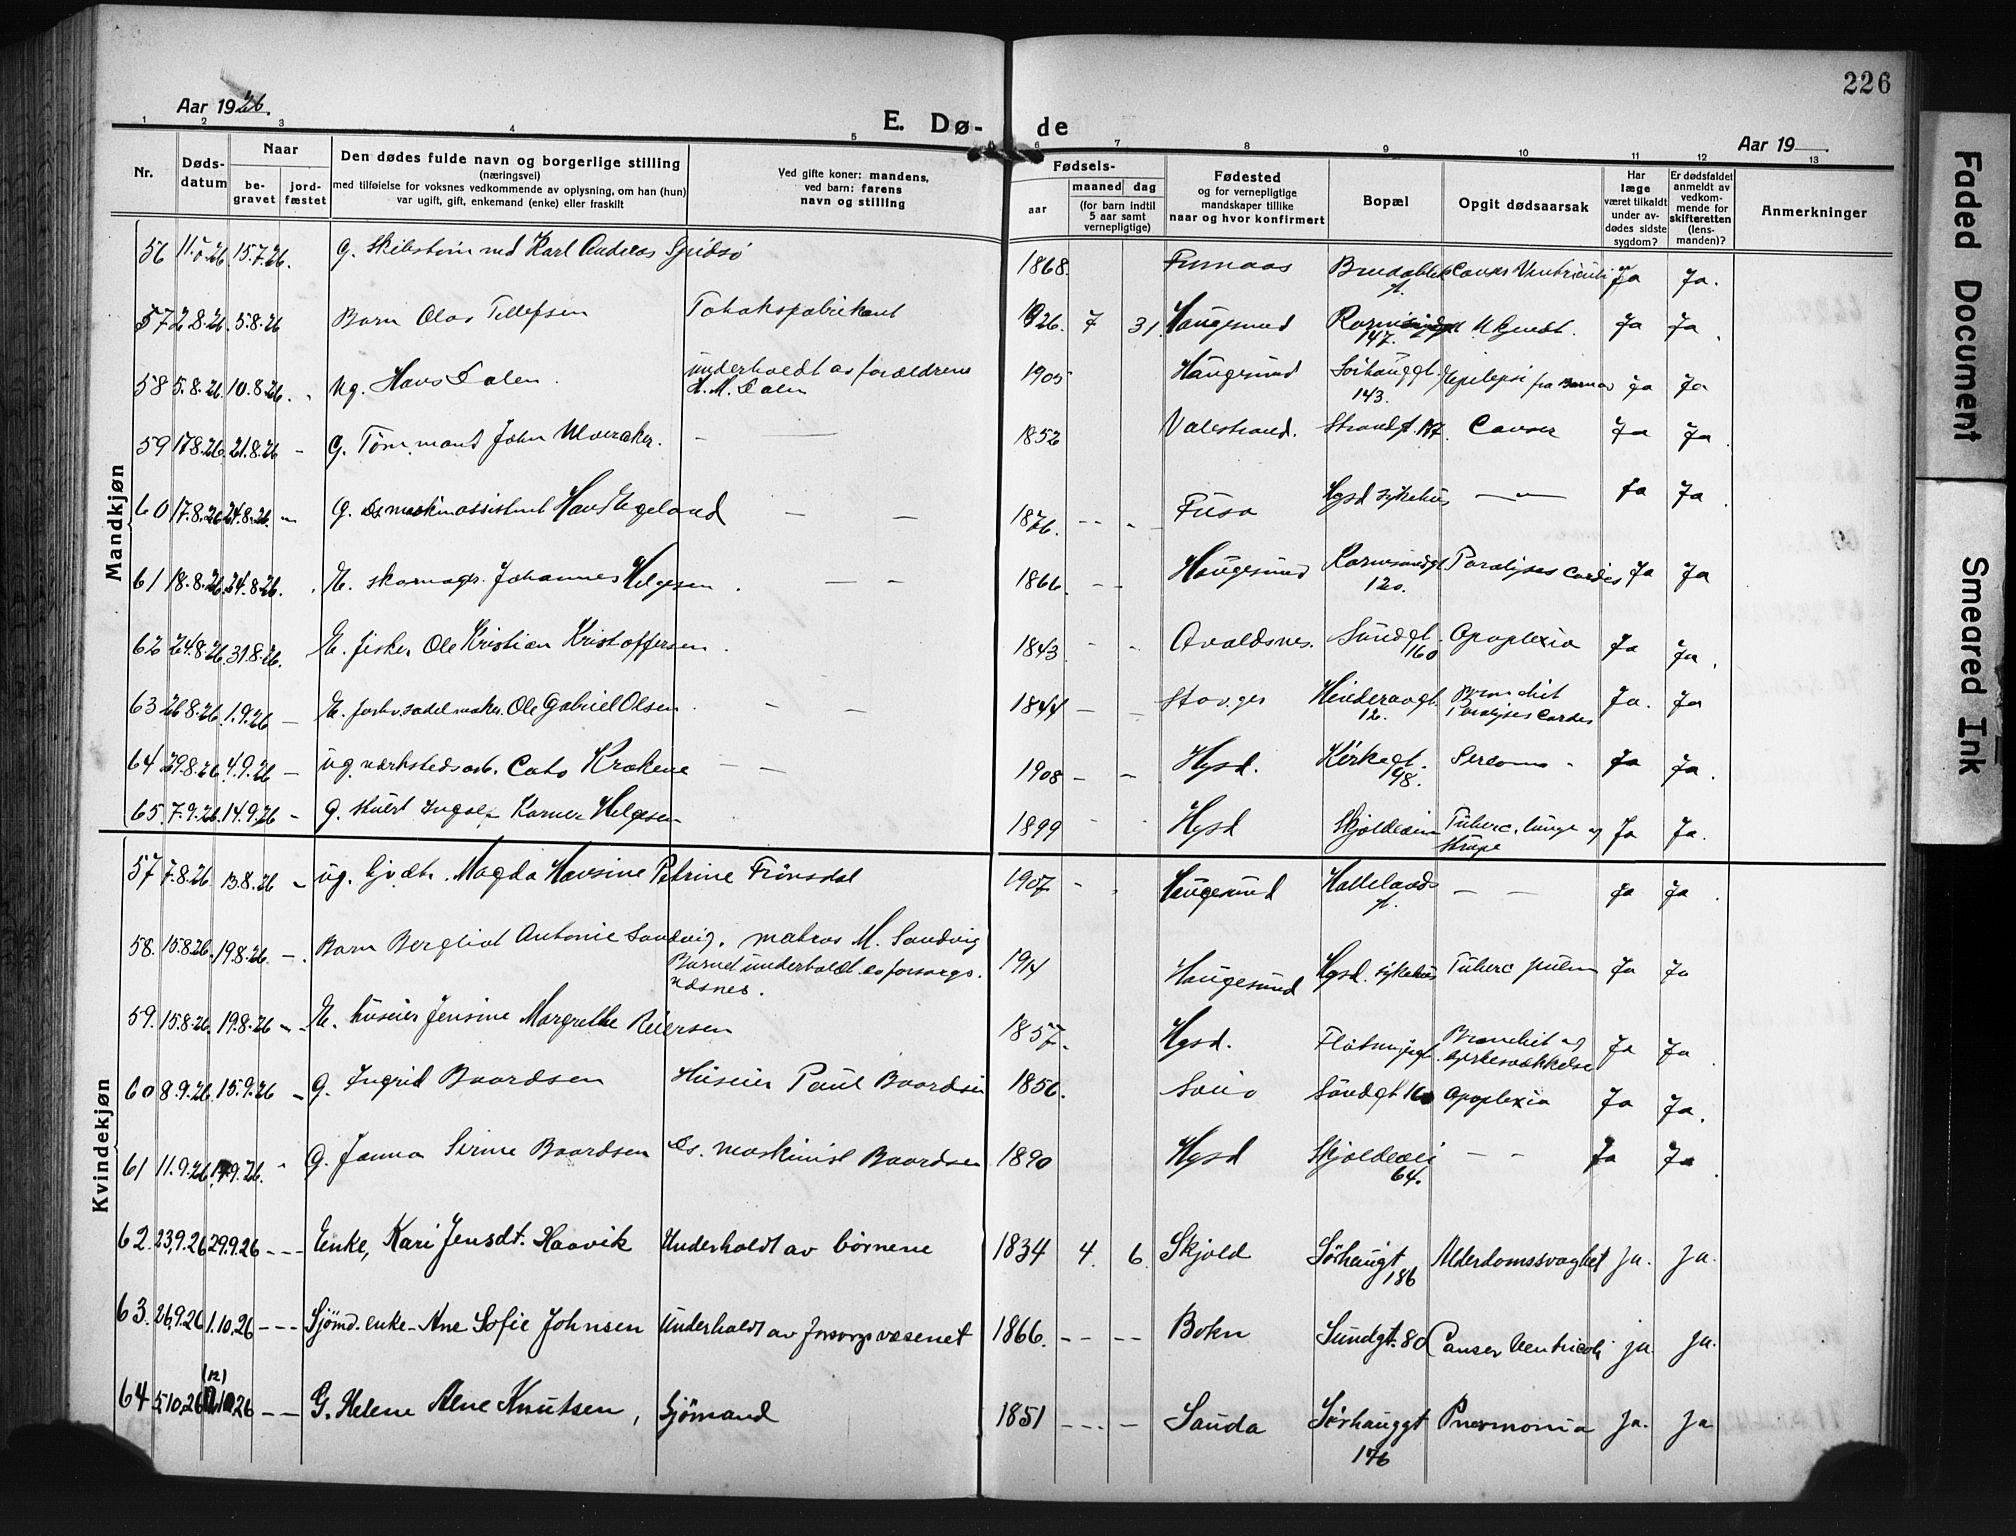 226
Aar 1926.
E. Dø-de
Aar 19
1 2 3 4 5 6 7 8 9 10 11 12 13
Nr.
Døds-datum
Naar
be-gravet
jord-fæstet
Den dødes fulde navn og borgerlige stilling
(næringsvei)
med tilføielse for voksnes vedkommende av oplysning, om han (hun)
var ugift, gift, enkemand (enke) eller fraskilt
Ved gifte koner: mandens,
ved barn: farens
navn og stilling
Fødsels-
aar
maaned
dag
(for barn indtil
5 aar samt
vernepligtige)
Fødested
og for vernepligtige
mandskaper tillike
naar og hvor konfirmert
Bopæl
Opgit dødsaarsak
Har
læge
været tilkaldt
under av-
dødes sidste
sygdom?
Er dødsfaldet
anmeldt av
vedkom-
mende for
skifteretten
(lens-
manden)?
Anmerkninger
Mandkjøn
56 15.7.26. G. Karl Andreas 1868. Ja Ja.
57 2.8.26. 5.8.26 Barn Olav Tellefsen Tobaksfabrikant 1926. 7 31. Haugesund 147. Ja Ja
58 5.8.26. 10.8.26. Ug. Hans Dalen. underholdt av forældrene
H. M. Dalen 1905 Haugesund Sørhauggt. 143. Epilepsi fra Ja Ja
59 17.8.26. 21.8.26 - G. Tømmermand John 1852 Valestrand. Strandgt. Canser Ja Ja
60 17.8.26 24.8.26. - G. Ds. maskinassistent Hans Egeland - - 1876. - - - Fusa Hgsd sykehus - " - Ja Ja
61 18.8.26. 24.8.26. E. skomager. Johannes Helgesen - - 1866. - - Haugesund Karmsundgt 120. Paralyses Cordis Ja Ja
62 24.8.26. 31.8.26. E. fisker Ole Kristian Kristoffersen 1843 - - Avaldsnes. Sundgt. 160 Apoplexia Ja Ja.
63 26.8.26. 1.9.26 - E. forhv. sadelmaker. Ole Gabriel Olsen. - - 1844 - - Stavger Hinderaagt. 12. Bronchit
Paralyses Cordis Ja. Ja
64 29.8.26 4.9.26 - ug. værkstedsarb. Cato Krakene - - 1908 - - Hgsd. Kirkegt. 198. Sercoma - Ja Ja.
65. 7.9.26. 14.9.26 - G. Helgesen 1899 Hgsd Skjoldevei Tuberc. lunge og
strupe Ja Ja.
Kvindekjøn
57 7.8.26. 13.8.26 - ug. Magda Hansine Petrine 1907 - Haugesund - - Ja Ja
58. 15.8.26. 19.8.26 - Barn Bergliot Antonie Sandvig. matros M. Sandvig
Barnet underholdt av forsorgs.
væsnet. 1914 Haugesund Hgsd. sykehus Tuberc pulm Ja Ja
59. 15.8.26. 19.8.26 - E. huseier Jensine Margrethe Reiersen 1857. Hgsd. Bronchit og
Ja Ja
60 8.9.26. 15.9.26 - G. Ingrid Baardsen Huseier Paul Baardsen 1856. Sundgt 160 Apoplexia Ja Ja.
61 11.9.26 17.9.26. G. Janna Serine Baardsen Ds. maskinist Baardsen 1890 Hgsd Skjoldevei 64. - - Ja Ja
62. 23.9.26 29.9.26 - - - Enke, Kari Jensdt. Haavik Underholdt av børnene 1834 4. 6. Skjold Sørhaugt 186 Alderdomssvaghet ja. ja.
63. 26.9.26 1.10.26 - - - Sjømd. enke - Ane Sofie Johnsen Underholdt av forsorgsvæsenet 1866. - - - - Bokn Sundgt. 80 Canser Ventricoli ja. ja.
64 5.10.26 (12) 10.26 - - G. Helene Alne Knutsen, Sjømand 1851 - - - - Sauda Sørhauggt 176 Pnevmonia ja. ja
Faded Document
Smeared Ink